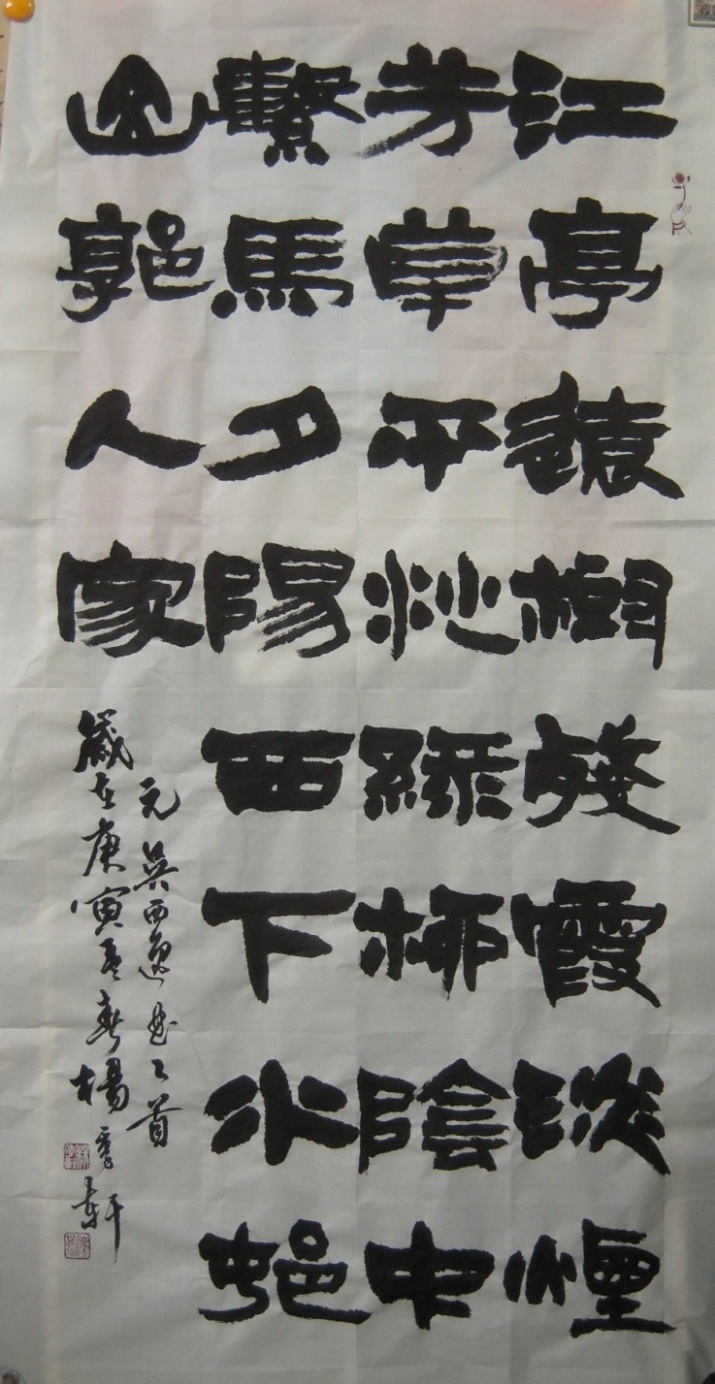 江亭遠樹殘霞淡煙
芳草平沙綠柳陰中
繫馬夕陽西下水邨
山郭人家
元吳西逸曲首
歲在庚寅孟春楊軒